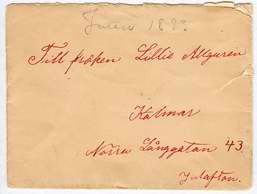 Julen 1893
Till fröken Lillie Allguren
Kalmar
Norra Långgatan 43
Julafton.